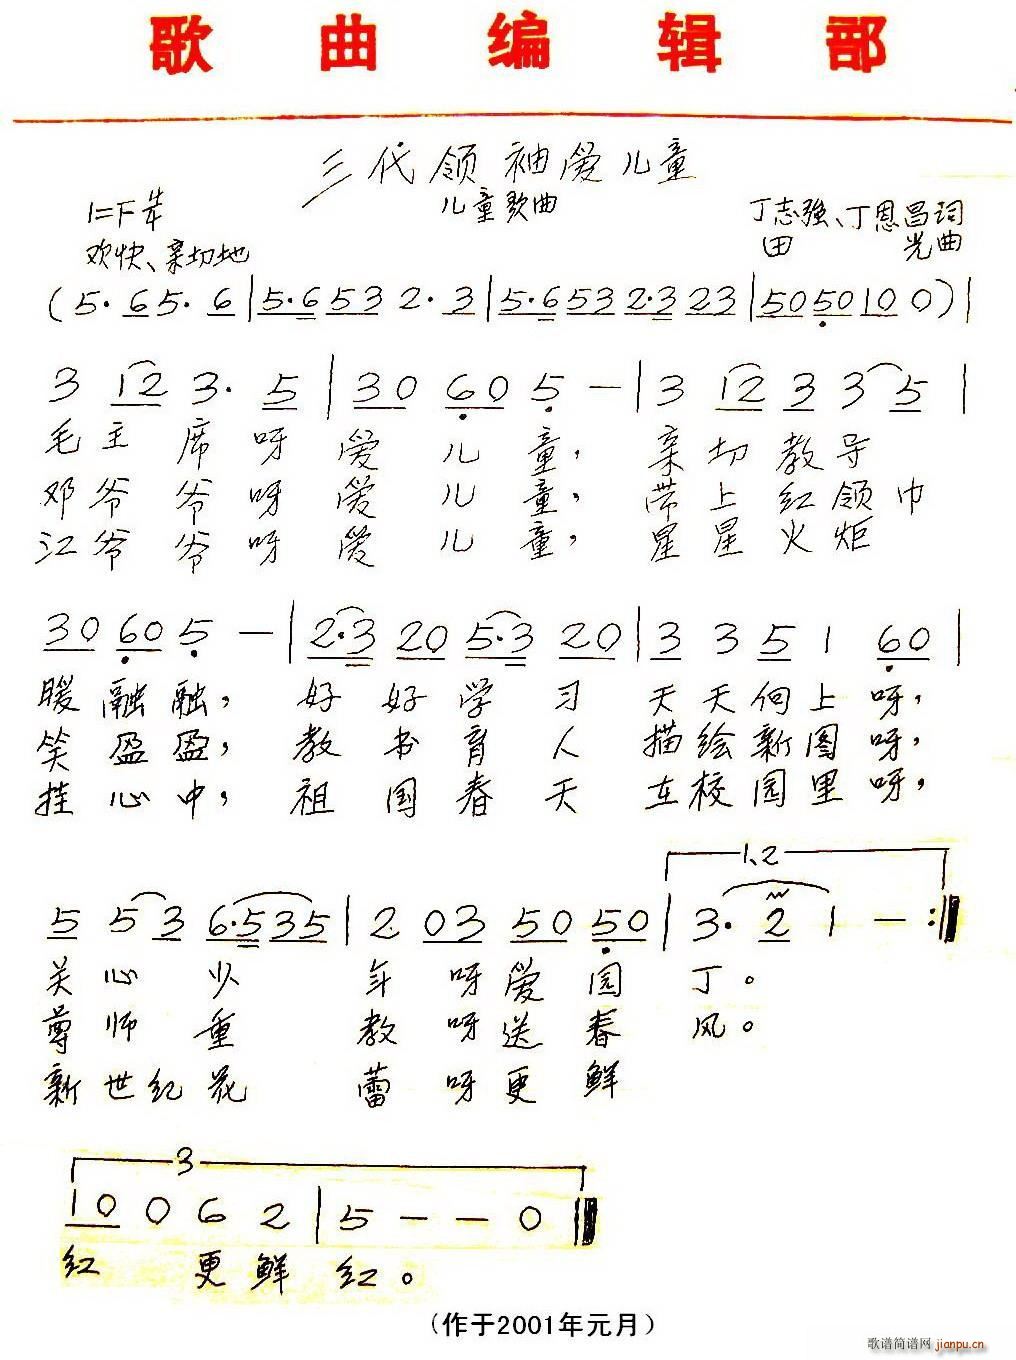 歌曲编辑部
三代领袖爱儿童
儿童歌曲
1=F 4/4
丁志强、丁恩昌词
欢快、亲切地
田光曲
(5·65·6|5·6532·3|5·6532·323|5050100)|
3 12 3· 5|30 60 5 —|3 12 3 3 5|
毛主席呀爱儿童，亲切教导
邓爷爷呀爱儿童，带上红领巾
江爷爷呀爱儿童，星星火炬
30 60 5 —|2·3 20 5·3 20|3 3 5 1 60|
暖融融，好好学习天天向上呀，
笑盈盈，教书育人描绘新图呀，
挂心中，祖国春天在校园里呀，
1、2
5 53 6·535|2 03 50 50|3· 2 1 —:|
关心少年呀爱园丁。
尊师重教呀送春风。
新世纪花蕾呀更鲜
3
10 0 6 2|5 — — 0|
红更鲜红。
（作于2001年元月）
歌谱简谱网 jianpu.cn